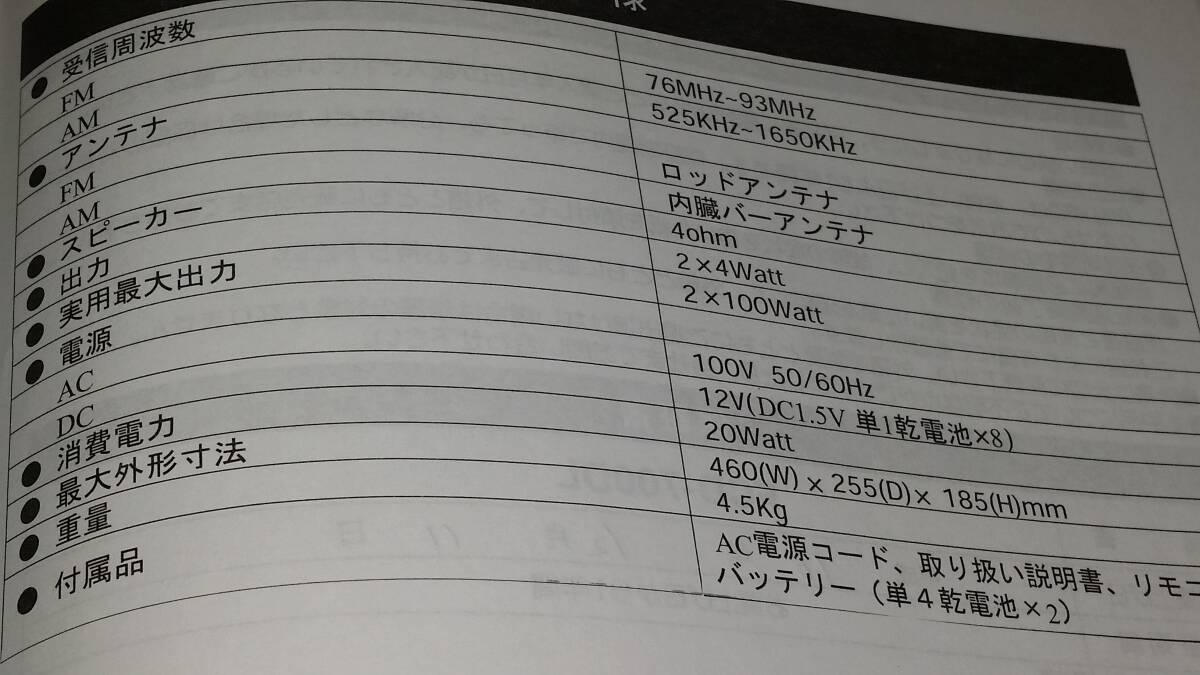 様
● 受信周波数
FM 76MHz~93MHz
AM 525KHz~1650KHz
● アンテナ
FM ロッドアンテナ
AM 内臓バーアンテナ
● スピーカー 4ohm
● 出力 2×4Watt
● 実用最大出力 2×100Watt
● 電源
AC 100V 50/60Hz
DC 12V(DC1.5V 単1乾電池×8)
● 消費電力 20Watt
● 最大外形寸法 460(W)×255(D)×185(H)mm
● 重量 4.5Kg
● 付属品 AC電源コード、取り扱い説明書、リモコ
バッテリー（単４乾電池×2）